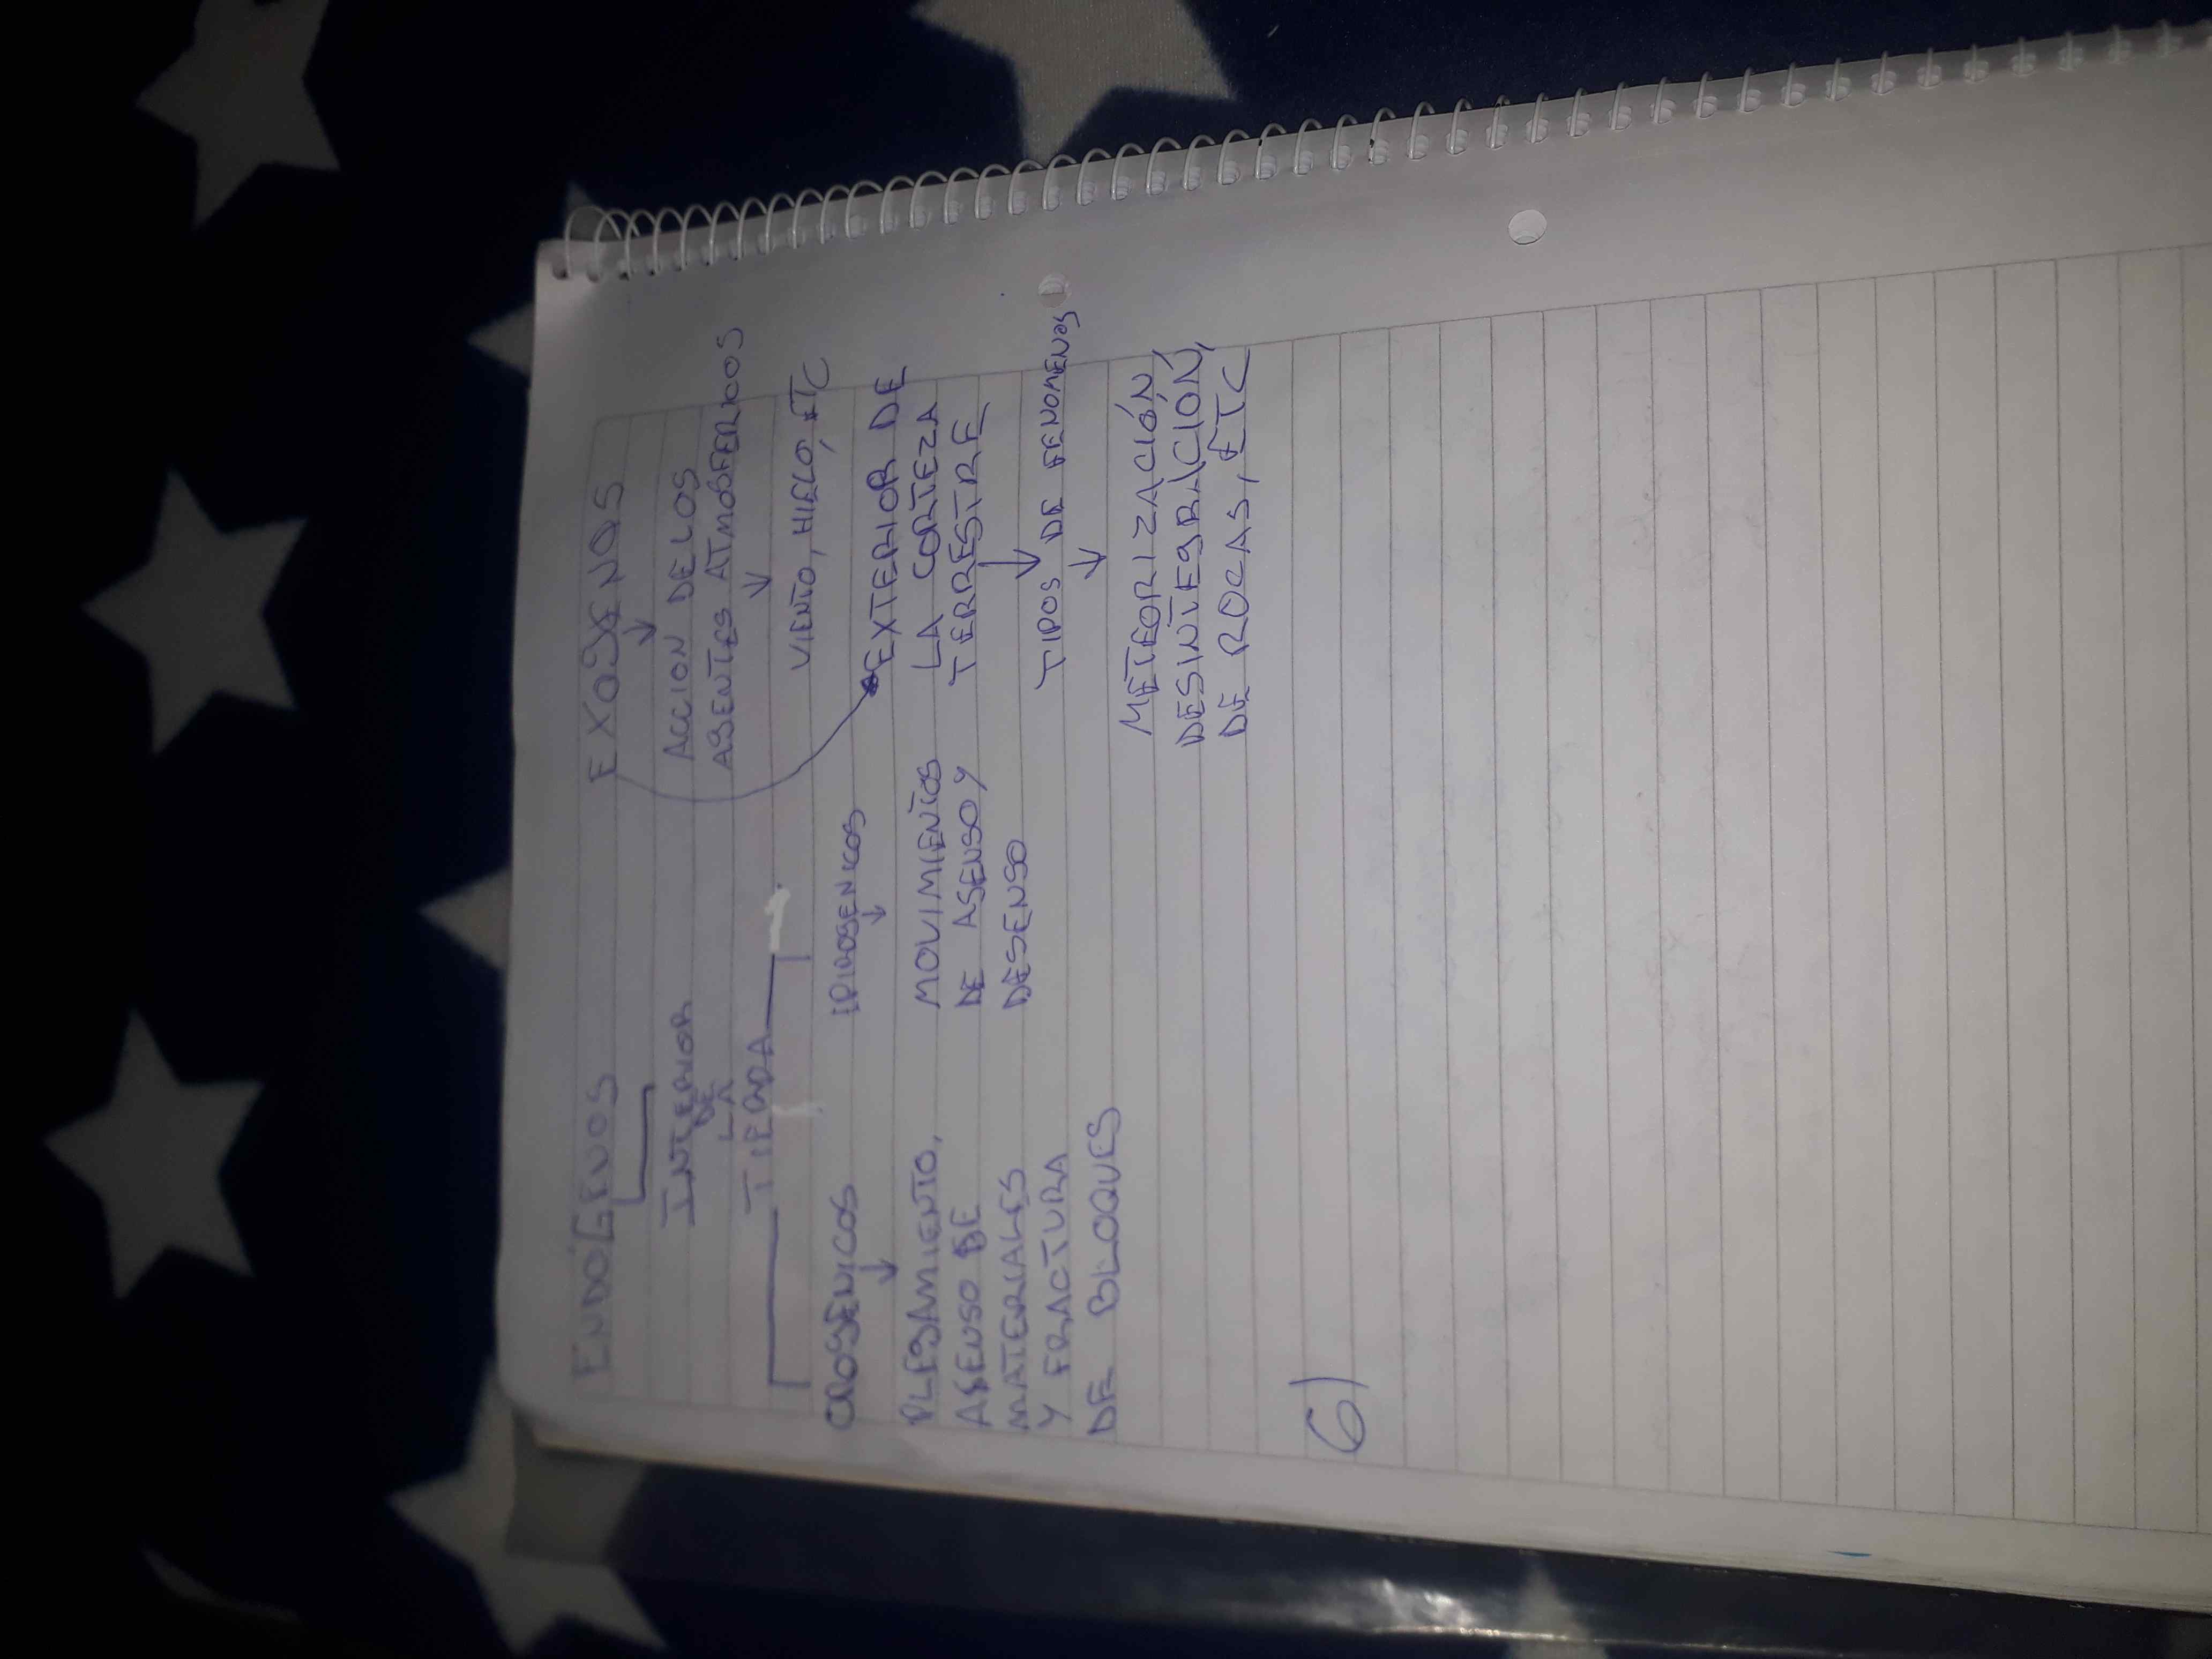 ENDÓGENOS
INTERIOR
DE
LA
TIERRA
OROGENICOS
PLEGAMIENTO,
ASENSO DE
MATERIALES
Y FRACTURA
DE BLOQUES
IPIROGENICOS
MOVIMIENTOS
DE ASENSO Y
DESENSO
EXOGENOS
ACCION DE LOS
AGENTES ATMOSFERICOS
VIENTO, HIELO, ETC
EXTERIOR DE
LA CORTEZA
TERRESTRE
TIPOS DE FENOMENOS
METEORIZACIÓN,
DESINTEGRACIÓN,
DE ROCAS, ETC
6)